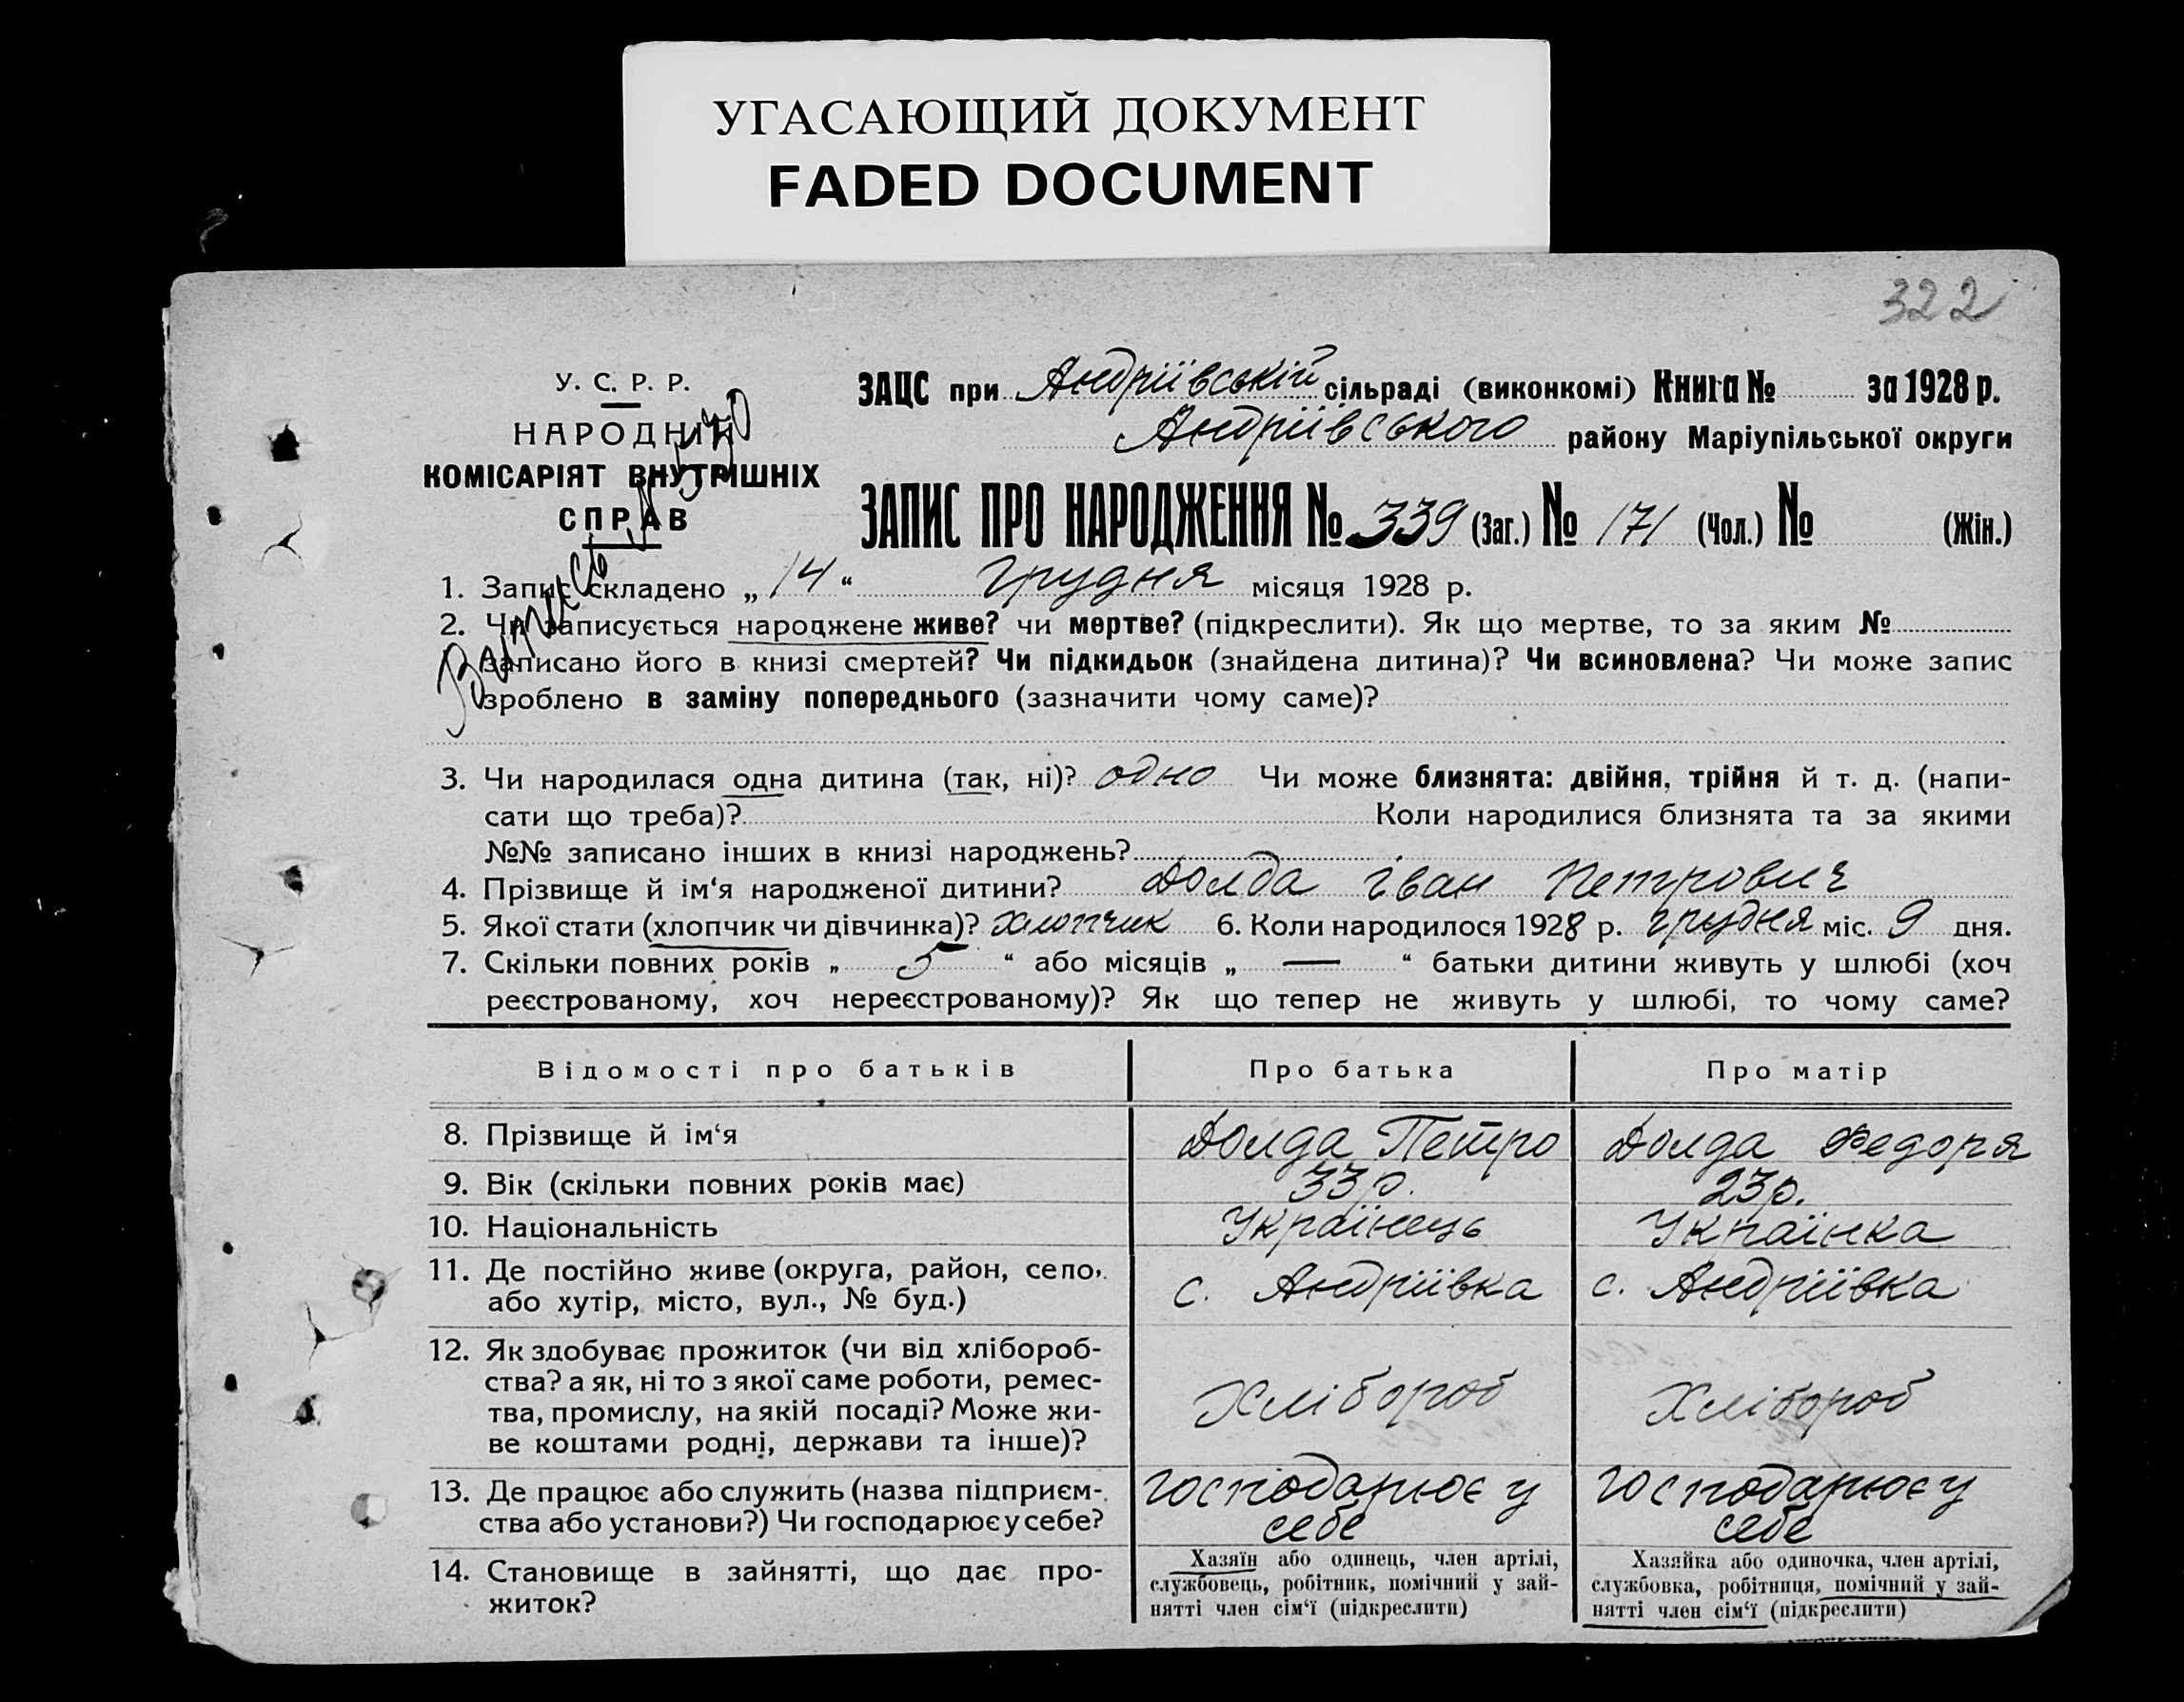 УГАСАЮЩИЙ ДОКУМЕНТ
FADED DOCUMENT
322
У. С. Р. Р.
НАРОДНІЙ
КОМІСАРІЯТ ВНУТРІШНІХ
СПРАВ
ЗАЦС при Андріївській сільраді (виконкомі) Книга № за 1928 р.
Андріївського району Маріупільської округи
ЗАПИС ПРО НАРОДЖЕННЯ № 339 (Заг.) № 171 (Чол.) № (Жін.)
1. Запис складено „ 14 “ грудня місяця 1928 р.
2. Чи записується народжене живе? чи мертве? (підкреслити). Як що мертве, то за яким №
записано його в книзі смертей? Чи підкидьок (знайдена дитина)? Чи всиновлена? Чи може запис
зроблено в заміну попереднього (зазначити чому саме)?
3. Чи народилася одна дитина (так, ні)? одно Чи може близнята: двійня, трійня й т. д. (напи-
сати що треба)? Коли народилися близнята та за якими
№№ записано інших в книзі народжень?
4. Прізвище й ім‘я народженої дитини? Долда Іван Петрович
5. Якої стати (хлопчик чи дівчинка)? Хлопчик 6. Коли народилося 1928 р. грудня міс. 9 дня.
7. Скільки повних років „ 5 “ або місяців „ — “ батьки дитини живуть у шлюбі (хоч
реєстрованому, хоч нереєстрованому)? Як що тепер не живуть у шлюбі, то чому саме?
Відомості про батьків Про батька Про матір
8. Прізвище й ім‘я Долда Петро Долда Федоря
9. Вік (скільки повних років має) 33 р. 23 р.
10. Національність Українець Українка
11. Де постійно живе (округа, район, село,
або хутір, місто, вул., № буд.) с. Андріївка с. Андріївка
12. Як здобуває прожиток (чи від хлібороб-
ства? а як, ні то з якої саме роботи, ремес-
тва, промислу, на якій посаді? Може жи-
ве коштами родні, держави та інше)? Хлібороб Хлібороб
13. Де працює або служить (назва підприєм-
ства або установи?) Чи господарює у себе?
господарює у себе
господарює у себе
14. Становище в зайнятті, що дає про-
житок?
Хазяїн або одинець, член артілі,
службовець, робітник, помічний у зай-
нятті член сім‘ї (підкреслити)
Хазяйка або одиночка, член артілі,
службовка, робітниця, помічний у зай-
нятті член сім‘ї (підкреслити)